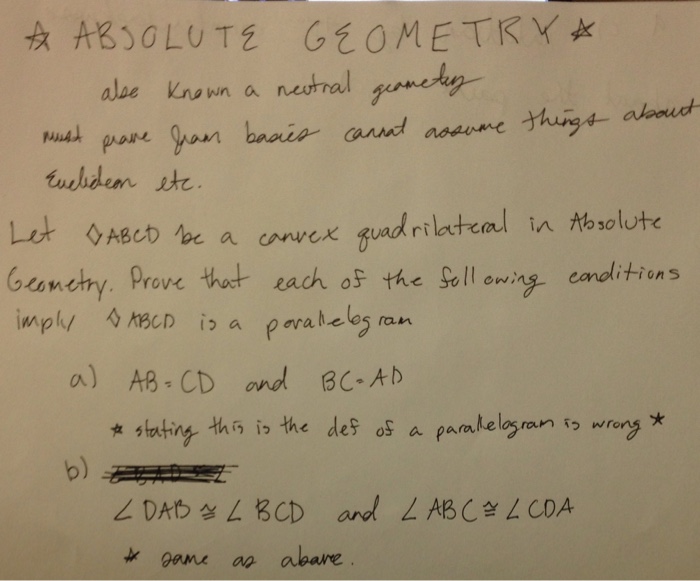 ☆ ABSOLUTE GEOMETRY ☆
also known a neutral geometry
must prove from basics cannot assume things about
Euclidean etc.
Let ◊ABCD be a convex quadrilateral in Absolute
Geometry. Prove that each of the following conditions
imply ◊ABCD is a parallelogram
a) AB = CD and BC = AD
* stating this is the def of a parallelogram is wrong *
b)
∠DAB ≅ ∠BCD and ∠ABC ≅ ∠CDA
* same as above.